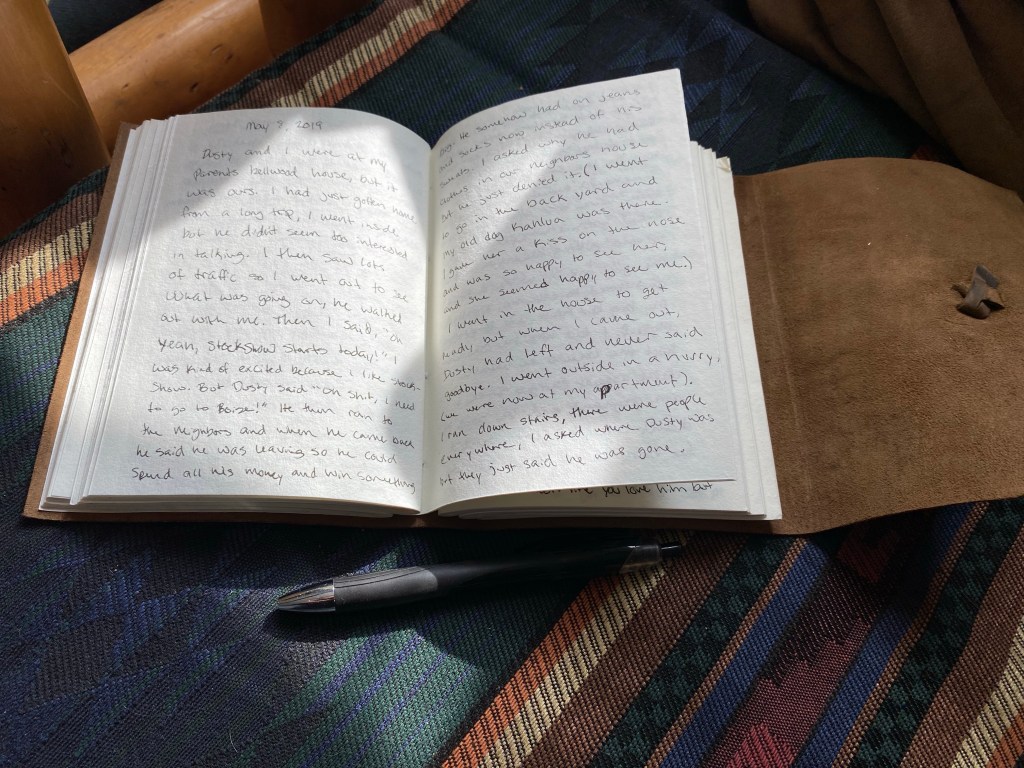 May 8, 2019
Dusty and I were at my
Parents bellwood house, but it
was ours. I had just gotten home
from a long trip, I went inside
but he didn't seem too interested
in talking. I then saw lots
of traffic so I went out to see
what was going on, he walked
out with me. Then I said, "oh
yeah, stockshow starts today!" I
was kind of excited because I like stock-
shows. But Dusty said "oh shit, I need
to go to Boise!" He then ran to
the neighbors and when he came back
he said he was leaving so he could
spend all his money and win something
big. He somehow had on jeans
and socks now instead of his
sweats. I asked why he had
clothes in our neighbors house
but he just denied it. (I went
to go in the back yard and
my old dog Kahlua was there.
I gave her a kiss on the nose
and was so happy to see her,
and she seemed happy to see me.)
I went in the house to get
ready, but when I came out,
Dusty had left and never said
goodbye. I went outside in a hurry,
(we were now at my apartment).
I ran down stairs, there were people
everywhere, I asked where Dusty was
but they just said he was gone.
you love him but